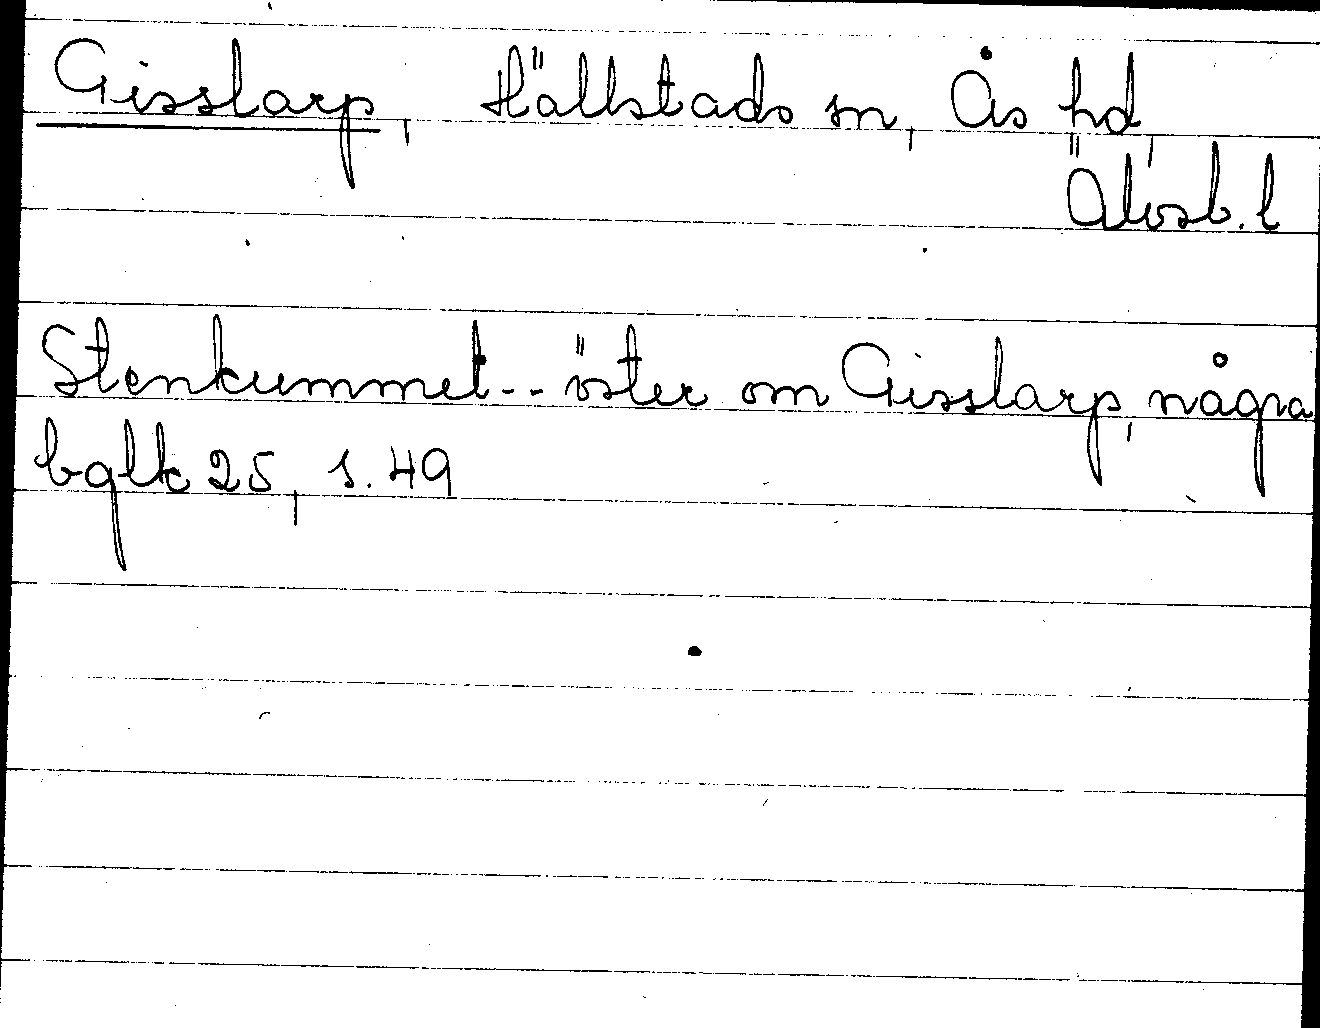 Gisslarp, Hällstads sn, Ås hd,
Älvsb. l
Stenkummel -- öster om Gisslarp, några
bglk 25, s. 49